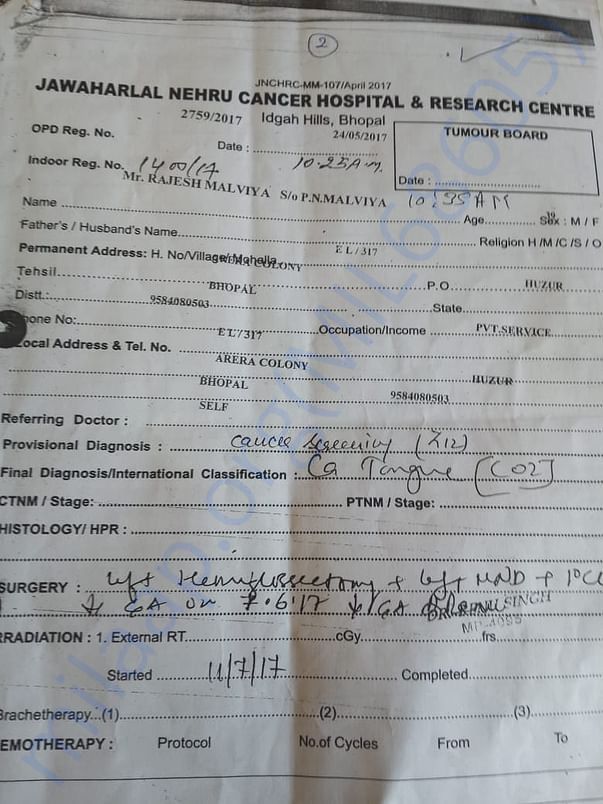 2
JNCHRC-MM-107/April 2017
JAWAHARLAL NEHRU CANCER HOSPITAL & RESEARCH CENTRE
2759/2017 Idgah Hills, Bhopal
OPD Reg. No. Date : 24/05/2017
TUMOUR BOARD
Indoor Reg. No. 1400/17 10:25 A.M.
Date :
Mr. RAJESH MALVIYA S/o P.N.MALVIYA 10:35 AM
Name Age Sex : M / F
Father's / Husband's Name Religion H /M /C /S / O
EL/317
Permanent Address: H. No/Village/Mohella
COLONY
Tehsil P.O. HUZUR
BHOPAL
Distt.: State
9584080503
Phone No: Occupation/Income PVT.SERVICE
EL/317
Local Address & Tel. No.
ARERA COLONY
HUZUR
BHOPAL 9584080503
SELF
Referring Doctor :
Provisional Diagnosis : cancer screening (Z12)
Final Diagnosis/International Classification : Ca Tongue [C02]
CTNM / Stage: PTNM / Stage:
HISTOLOGY/ HPR :
SURGERY : Left Hemiglossectomy + left MND +
GA on 7.6.17 GA SINGH
RRADIATION : 1. External RT cGy frs
Started 11/7/17 Completed
Brachetherapy...(1) (2) (3)
EMOTHERAPY : Protocol No.of Cycles From To
milaap.org(MIL686057)